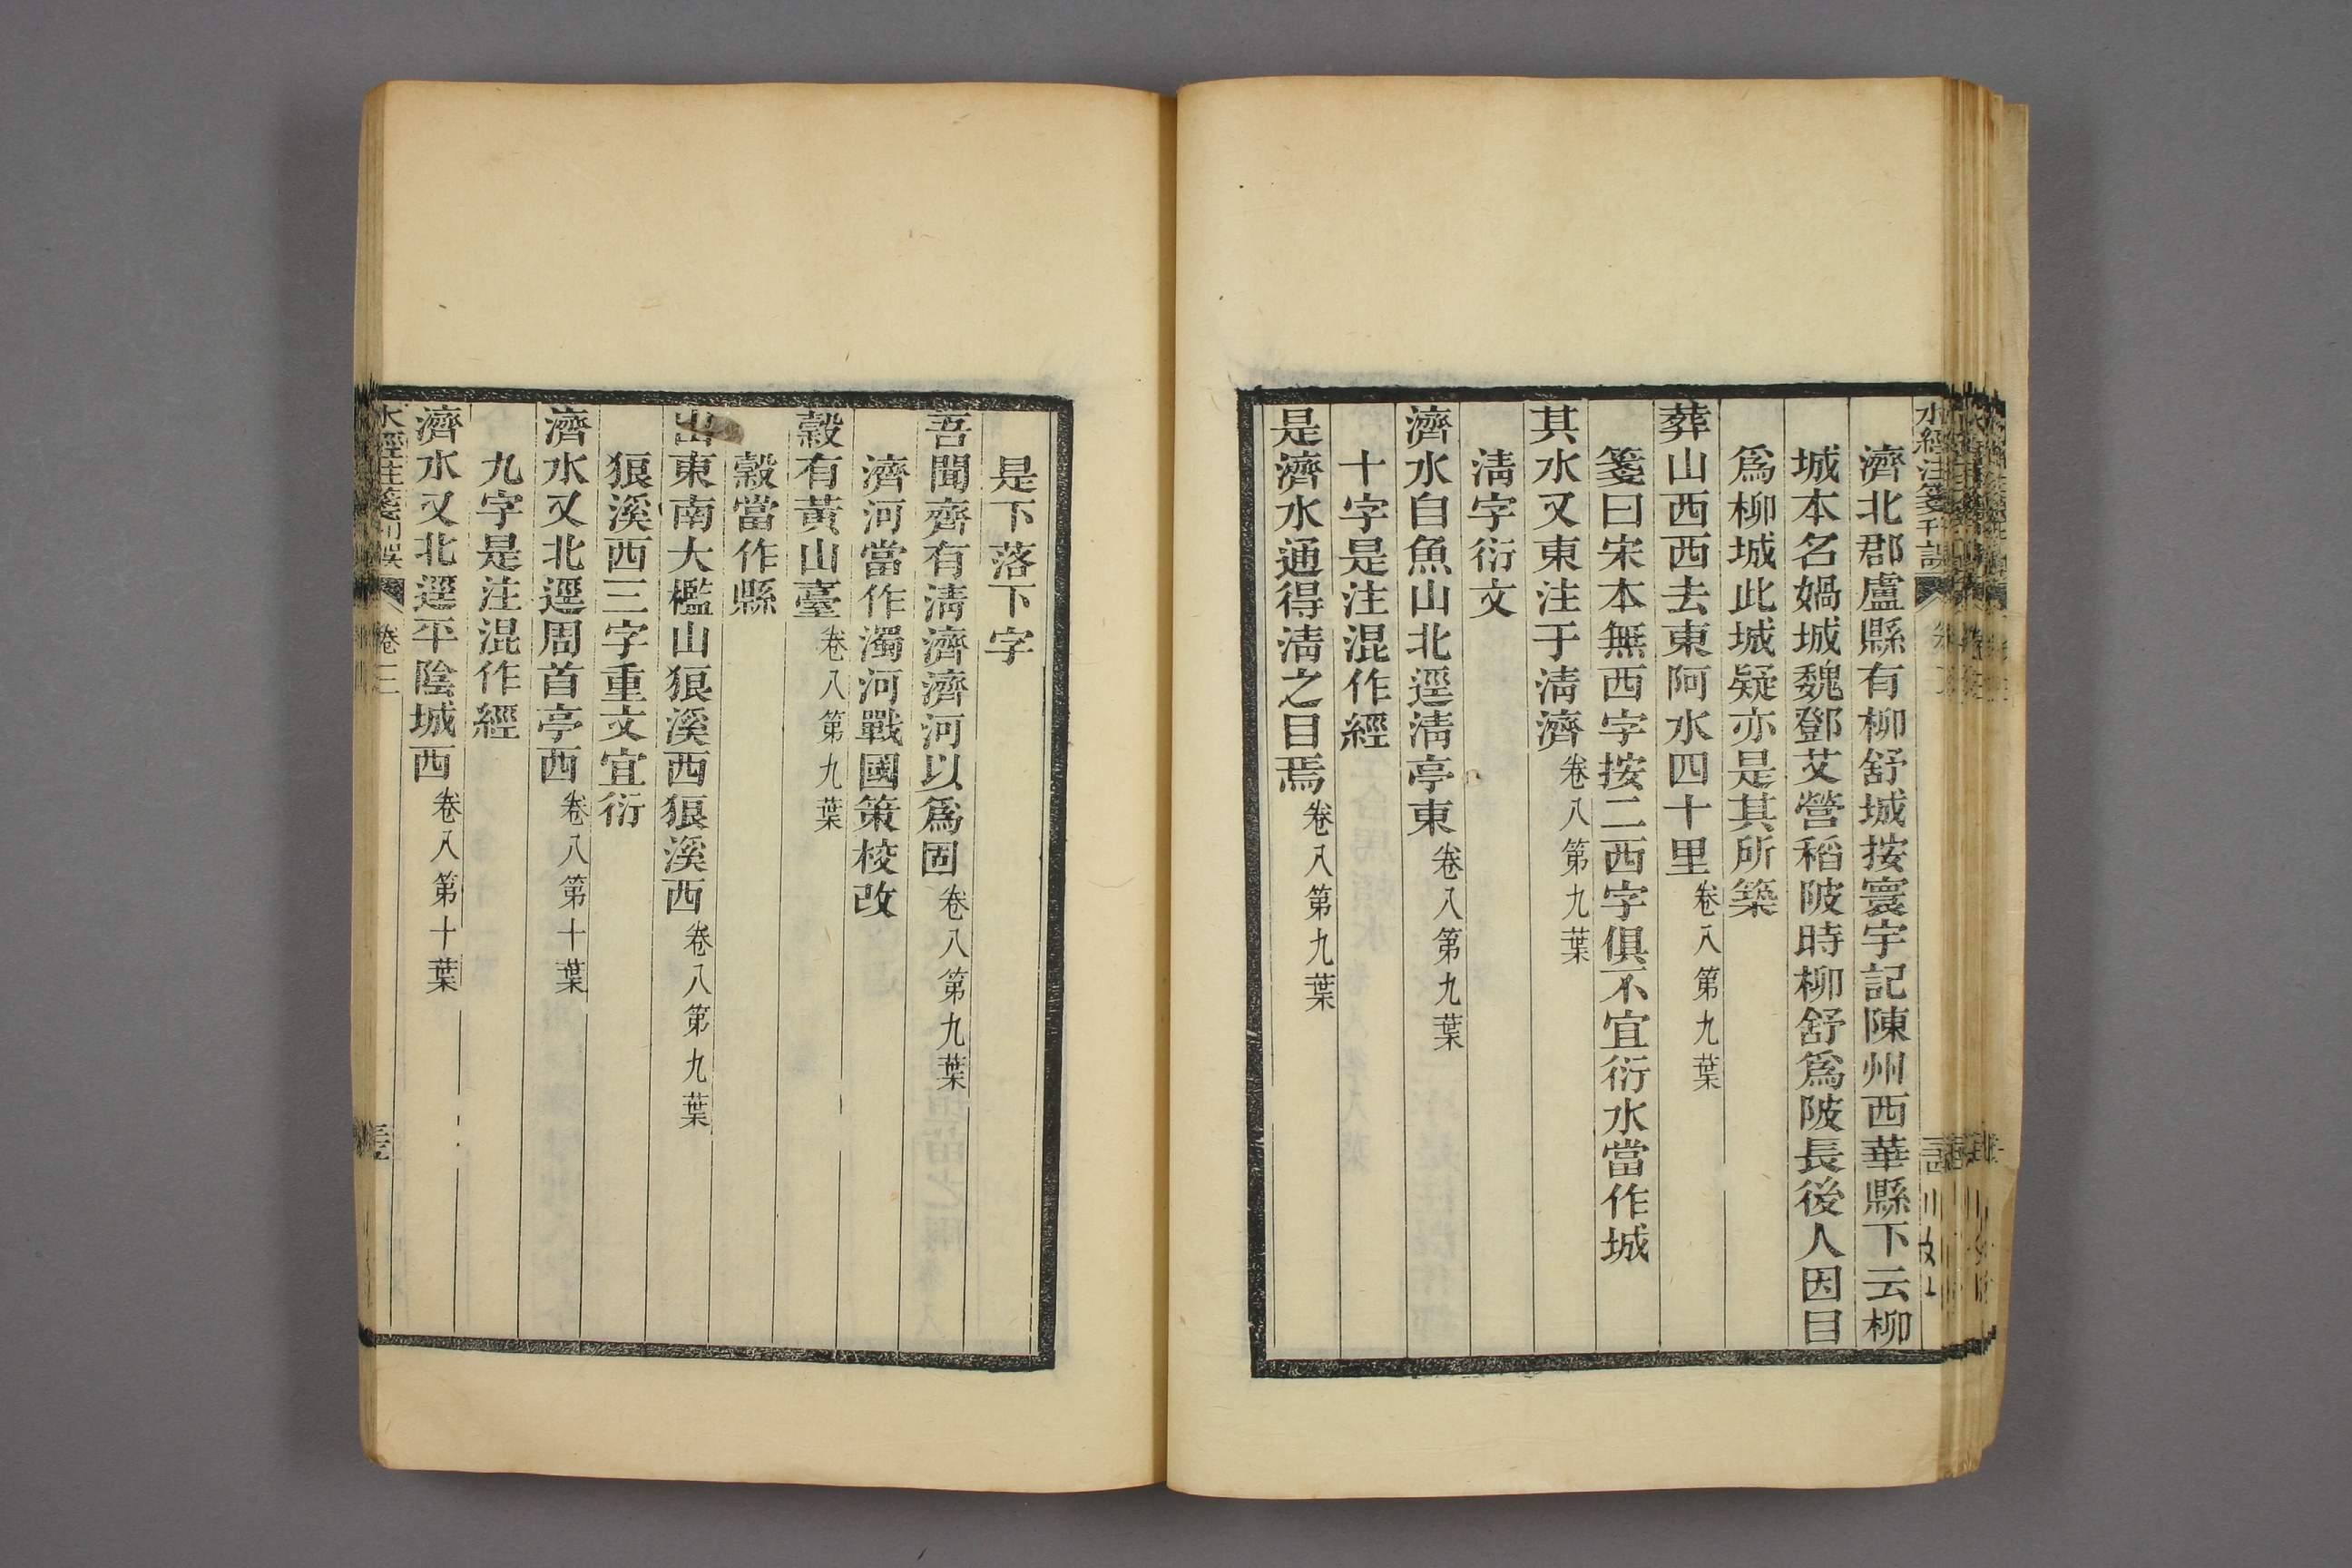 水經注箋刊誤
濟北郡盧縣有柳舒城按寰宇記陳州西華縣下云柳
城本名媧城魏鄧艾營稻陂時柳舒爲陂長後人因目
爲柳城此城疑亦是其所築
葬山西西去東阿水四十里卷八第九葉
箋曰宋本無西字按二西字俱不宜衍水當作城
其水又東注于清濟卷八第九葉
清字衍文
濟水自魚山北逕清亭東卷八第九葉
十字是注混作經
是濟水通得清之目焉卷八第九葉
是下落下字
吾聞齊有清濟濟河以爲固卷八第九葉
濟河當作濁河戰國策校改
穀有黃山臺卷八第九葉
穀當作縣
出東南大檻山狼溪西狼溪西卷八第九葉
狼溪西三字重文宜衍
濟水又北逕周首亭西卷八第十葉
九字是注混作經
濟水又北逕平陰城西卷八第十葉
水經注箋刊誤 卷三